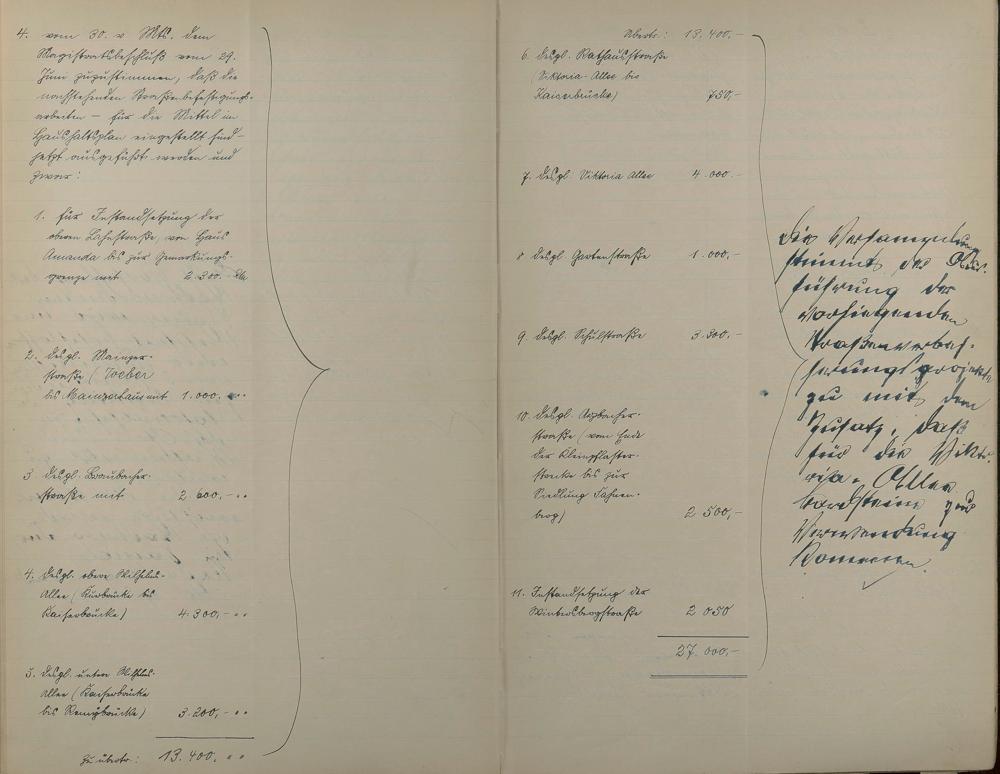 4. vom 30. v. Mts. dem
Magistratsbeschluß vom 29.
Juni zuzustimmen, daß die
nachstehenden Straßenbefestigungs-
arbeiten – für die Mittel im
Haushaltsplan eingestellt sind –
jetzt ausgeführt werden und
zwar:
1. für Instandsetzung der
oberen Lahnstraße, von Haus
Amanda bis zur Gemarkungs-
grenze mit 2.300.-
2. desgl. Mainzer-
straße (
bis Mainzerhaus mit 1.000. "
3 desgl. Braubacher-
straße mit 2 600,- "
4. desgl. obere Wilhelms-
Allee (Kurbrücke bis
Kaiserbrücke) 4.300,- "
5. desgl. untere Wilhelms-
Allee (Kaiserbrücke
bis Remybrücke) 3.200,- "
zu übertr: 13.400, "
Übertr: 13.400,-
6. desgl. Rathausstraße
(Viktoria-Allee bis
Kaiserbrücke) 750,-
7. desgl. Viktoria Allee 4.000.-
8 desgl. Gartenstraße 1.000.-
9. desgl. Schulstraße 3.300,-
10. desgl. Arzbacher-
straße (vom Ende
der Kleinpflaster-
strecke bis zur
Siedlung Fahnen-
berg) 2 500,-
11. Instandsetzung der
Wintersbergstraße 2 050
27.000,-
Die Versammlung
stimmt der Aus-
führung der
vorliegenden
Straßenverbes-
serungsprojekte
zu mit dem
Zusatz, daß
für die Vikto-
ria-Allee
Bordsteine zur
Verwendung
kommen.